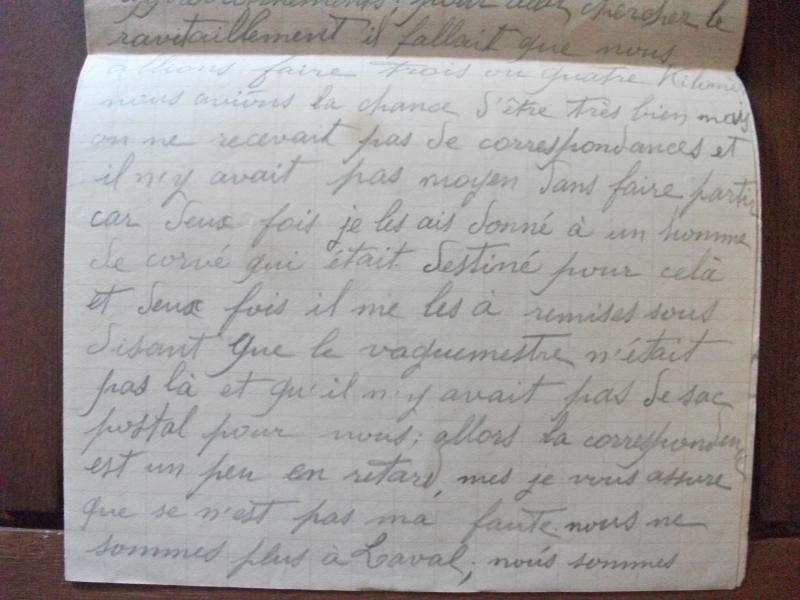 pour aller chercher le
ravitaillement il fallait que nous
allions faire trois ou quatre Kilomè
nous avions la chance d'être très bien mais
on ne recevait pas de correspondances et
il n'y avait pas moyen dans faire partir
car deux fois je les ais donné à un homme
de corvé qui était destiné pour celà
et deux fois il me les à remises sous
disant que le vaguemestre n'était
pas là et qu'il n'y avait pas de sac
postal pour nous; allors la correspondence
est un peu en retard, mes je vous assure
que se n'est pas ma faute. nous ne
sommes plus à Laval; nous sommes